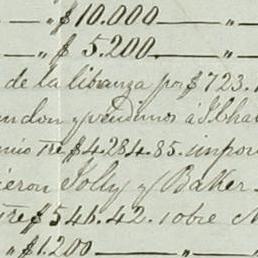 „ $ 10.000 „
„ $ 5.200. „
de la libranza por $ 723.
y vendimos á
$ 4.284.85. impor
ieron Jolly y Baker
$ 546.42. sobre
„ $ 1.200 „